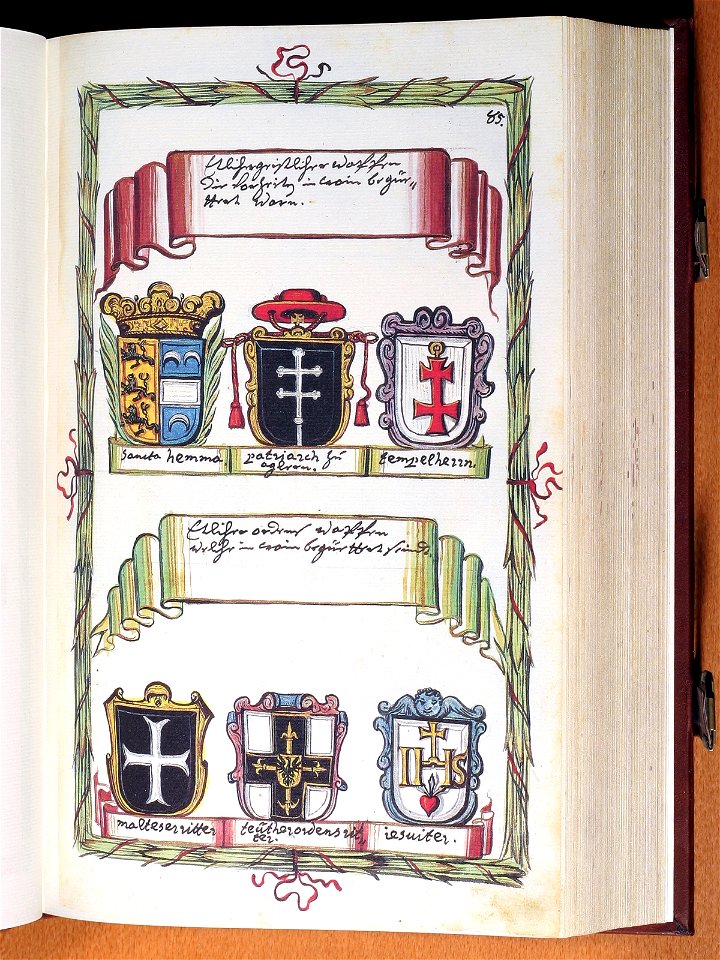 85.
Etlihe geistlihe waffen
Die vorzeitz in crain begür=
ttert warn.
Sancta hemma.
patriarch zu
aglern.
tempelherrn.
Etlihe ordens waffen
welhe in crain begürttert sindt.
malteserritter
teütherordensrit
ter.
iesuiter.
IHS